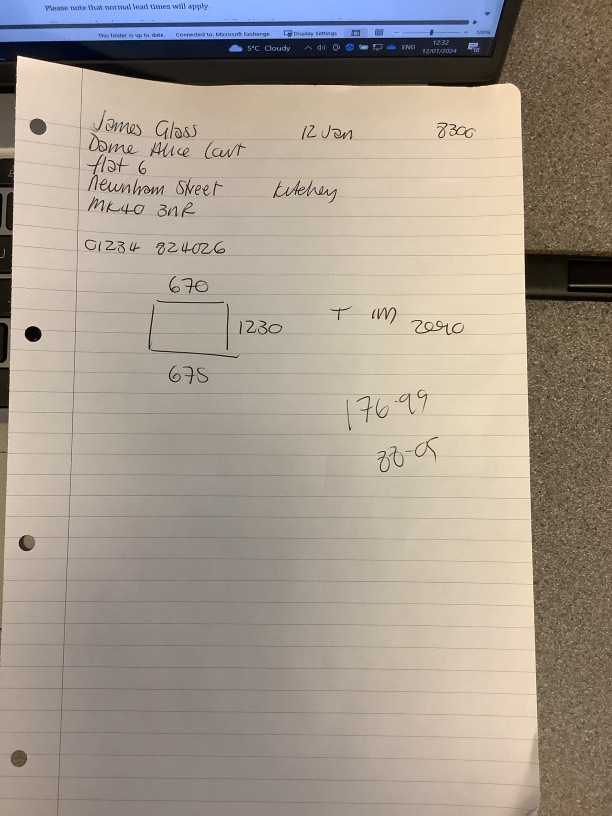 Please note that normal lead times will apply.
This folder is up to date. Connected to: Microsoft Exchange Display Settings 100%
5°C Cloudy ENG 12:32
12/01/2024
James Glass 12 Jan 8300
Dame Alice Court
flat 6
Newnham Street Kitchen
MK40 3NR
01234 824026
670
1230 T 1M zero
675
176-99
88-05